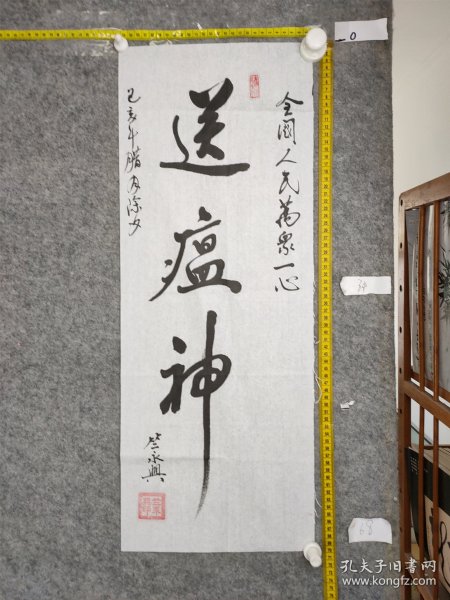 全國人民萬衆一心
送瘟神
己亥年腊月除夕
竺永興
0
34
68
孔夫子旧书网
www.kongfz.com